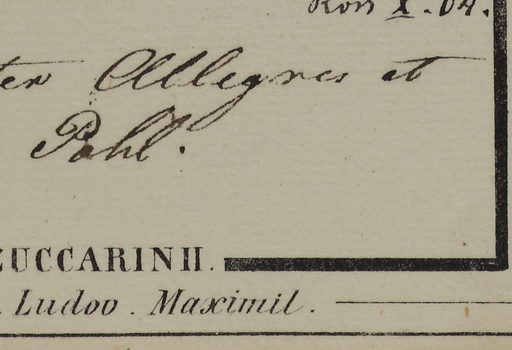 Kon X. 04.
ter Allegres et
Pohl.
ZUCCARINII.
. Ludov. Maximil.